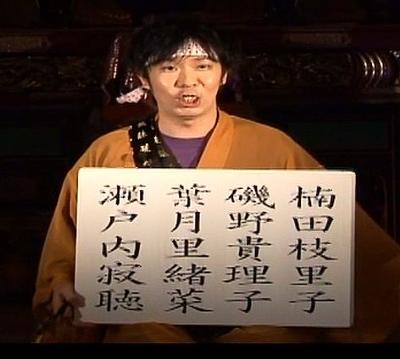 楠田枝里子
磯野貴理子
葉月里緒菜
瀬戸内寂聴